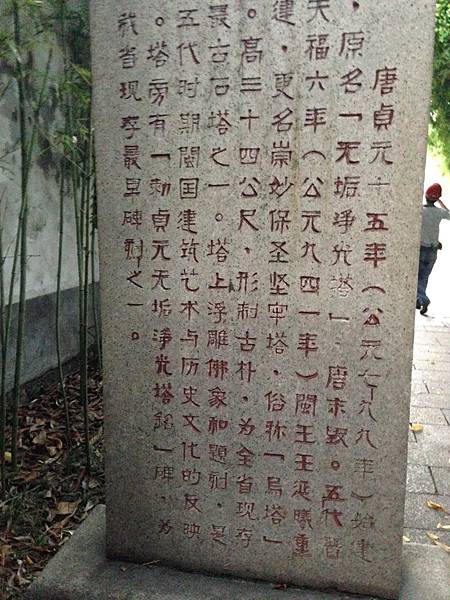 唐貞元十五年（公元七九九年）始建
，原名「无垢淨光塔」，唐末毀。五代晋
天福六年（公元九四一年）閩王王延曦重
建，更名崇妙保圣坚牢塔，俗称「烏塔」
。高三十四公尺，形制古朴，为全省現存
最古石塔之一。塔上浮雕佛象和題刻，是
五代时期閩国建筑艺术与历史文化的反映
。塔旁有「勅貞元无垢淨光塔銘」碑，为
我省現存最早碑刻之一。